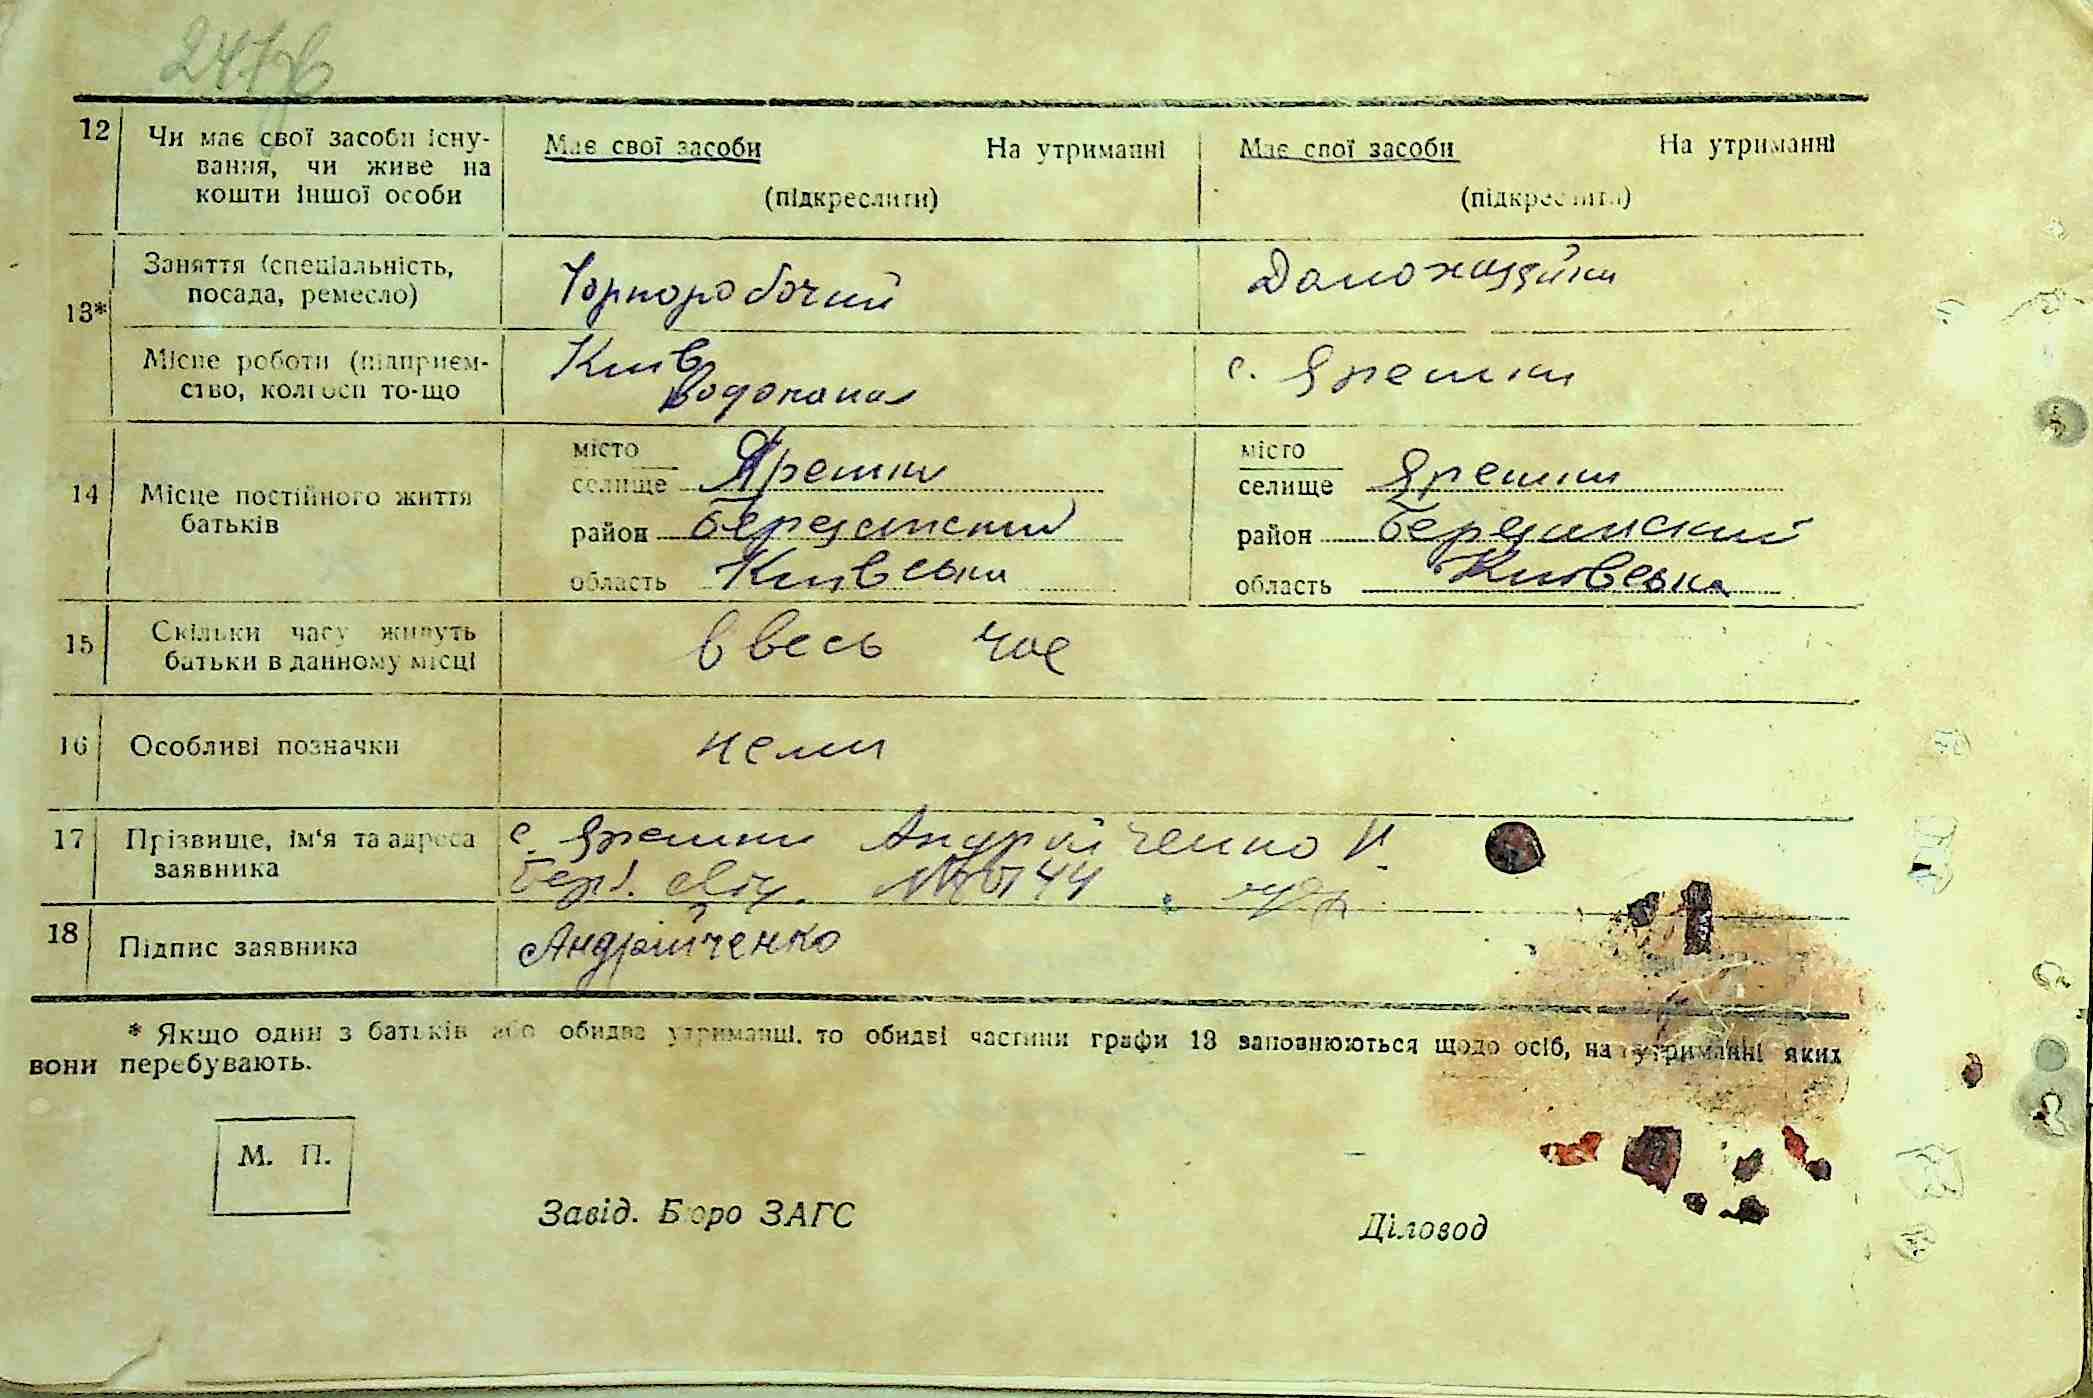 247в
12 Чи має свої засоби існу- Має свої засоби На утриманні Має свої засоби На утриманні
вання, чи живе на
кошти іншої особи (підкреслити) (підкреслити)
13* Заняття (спеціальність, Чорноробочий Домохазяйки
посада, ремесло)
Місце роботи (підприєм- Київ с. Ярешки
ство, колгосп то-що Водоканал
14 Місце постійного життя батьків
місто Ярешки місто Ярешки
селище селище
район район
область Київська область Київська
15 Скільки часу живуть ввесь час
батьки в данному місці
16 Особливі позначки нема
17 Прізвище, ім'я та адреса с. Ярешки Андрійченко И.
заявника
18 Підпис заявника Андрійченко
* Якщо один з батьків або обидва утриманці, то обидві частини графи 13 заповнюються щодо осіб, на утриманні яких
вони перебувають.
М. П.
Завід. Бюро ЗАГС Діловод